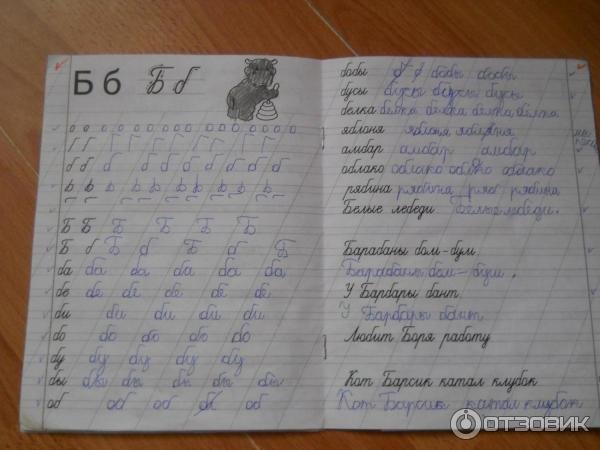 Б б Б б
о о о о о о о о о о о о
Г Г Г Г Г Г Г
б б б б б б б б б
ь ь ь ь ь ь ь ь ь
Б Б Б Б Б Б
Б б Б б Б б Б
ба ба ба ба ба ба
бе бе бе бе бе бе
би би би би би би
бо бо бо бо бо
бу бу бу бу бу
бы бы бы бы бы бы
об об об об об
бобы б б бобы бобы
бусы бусы бусы бусы
белка белка белка белка белка
яблоня яблоня яблоня
амбар амбар амбар
облако облако облако облако
рябина рябина ряб рябина
Белые лебеди. Белые лебеди.
Барабаны бом-бум.
Барабаны бом-бум.
У Барбары бант.
У Барбары бант
Любит Боря работу
Кот Барсик катал клубок
Кот Барсик катал клубок
ОТЗОВИК